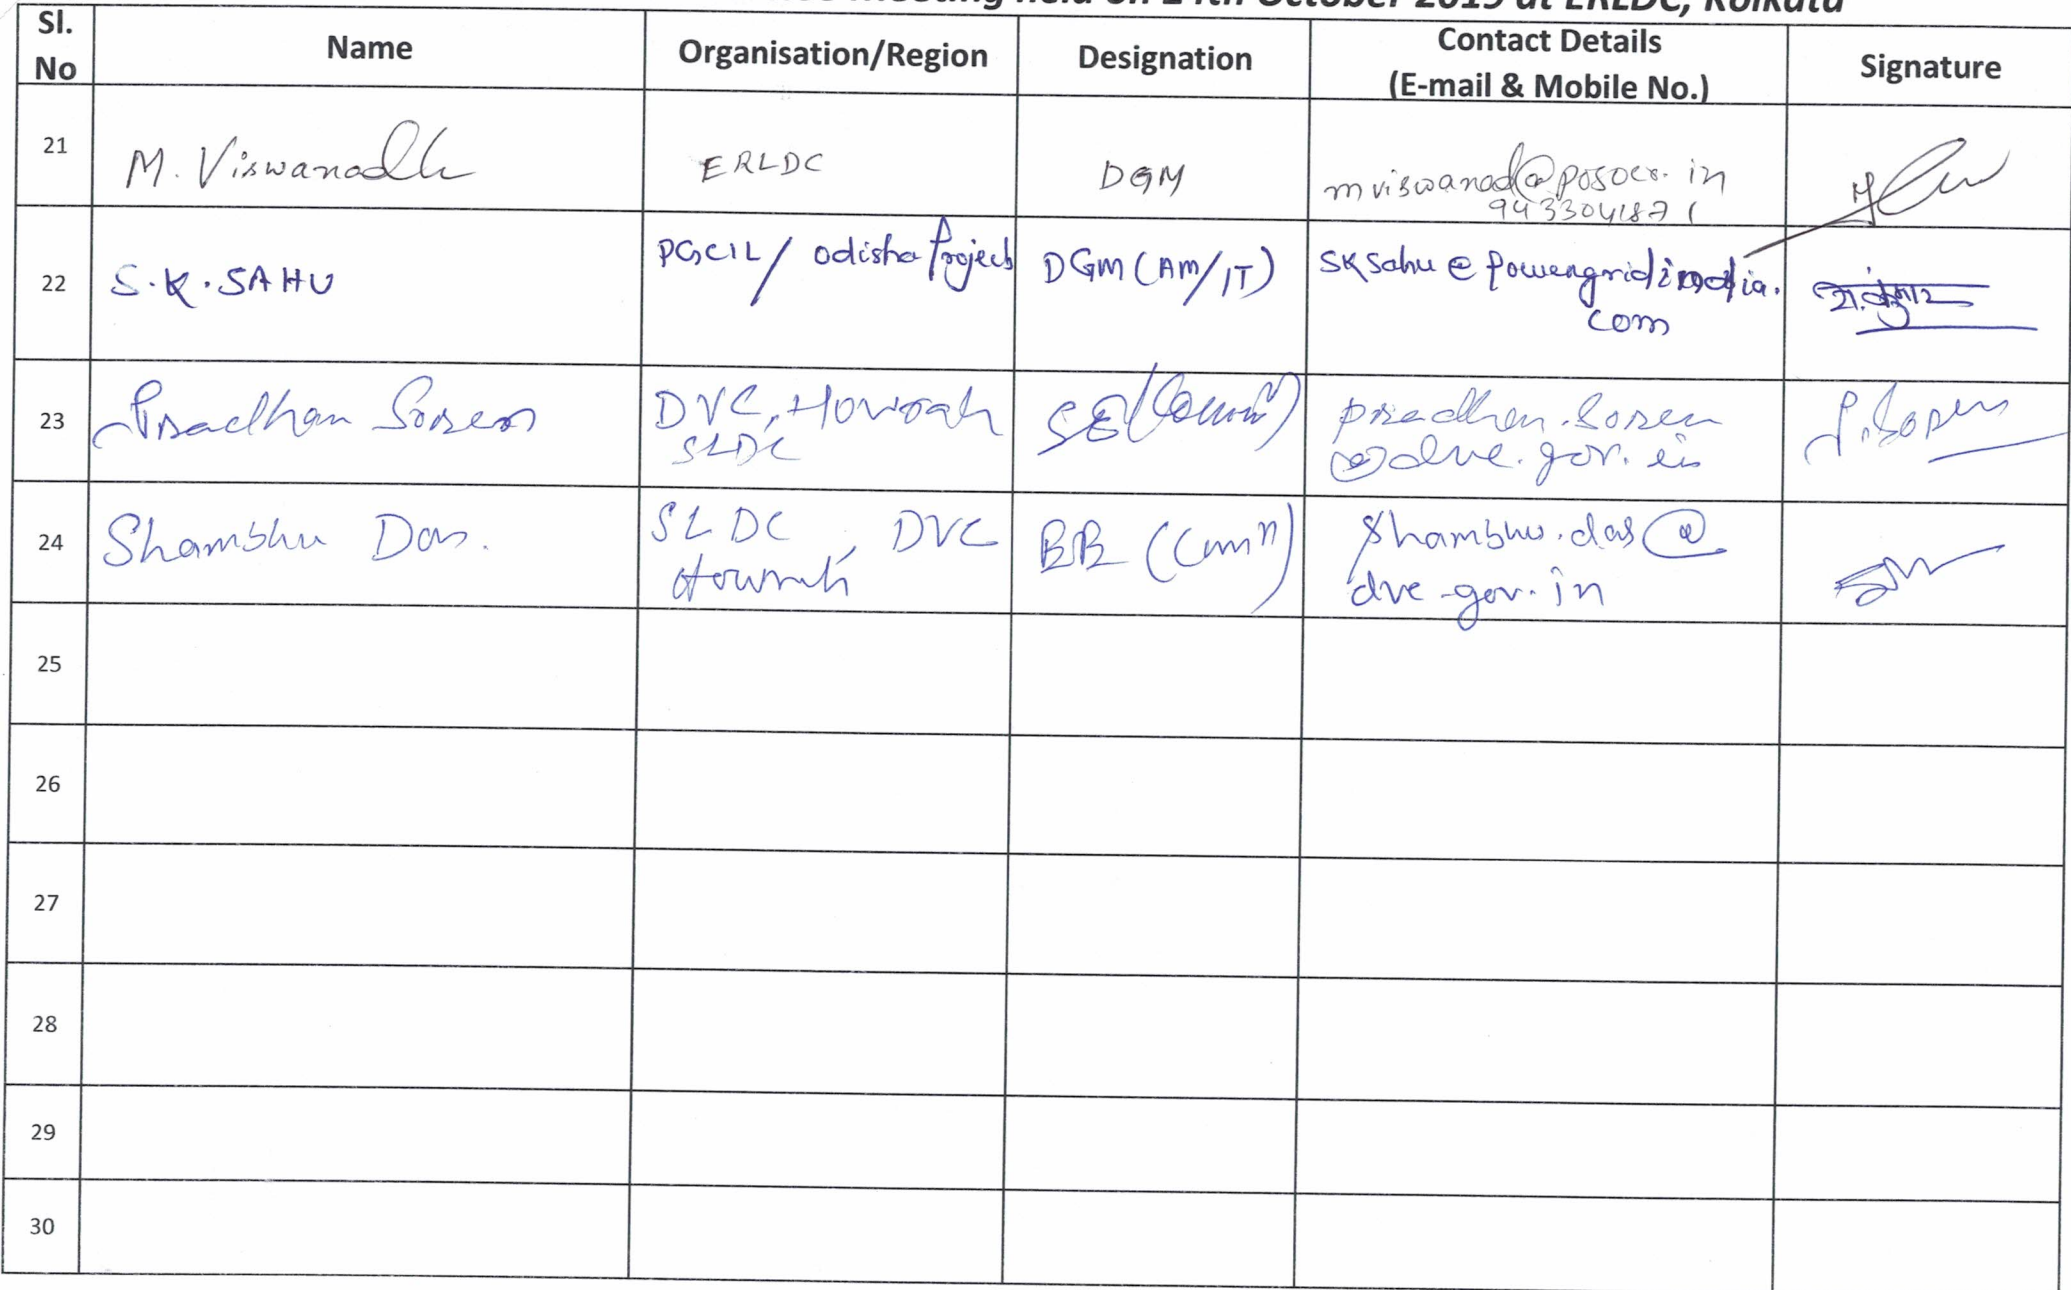 Meeting held on 14th October 2019 at ERLDC, Kolkata
Sl. No Name Organisation/Region Designation Contact Details (E-mail & Mobile No.) Signature
21 M. Viswanadh ERLDC DGM mviswanad@posoco.in
9433041871
22 S.K.SAHU PGCIL/ Odisha Projects DGM (AM/IT) sksahu@powergridindia.
com
23 Pradhan Soren DVC, Howrah SE(Commn) pradhan.soren
SLDC @dvc.gov.in P.Soren
24 Shambhu Das. SLDC, DVC (Commn) shambhu.das@
Howrah dvc.gov.in
25
26
27
28
29
30